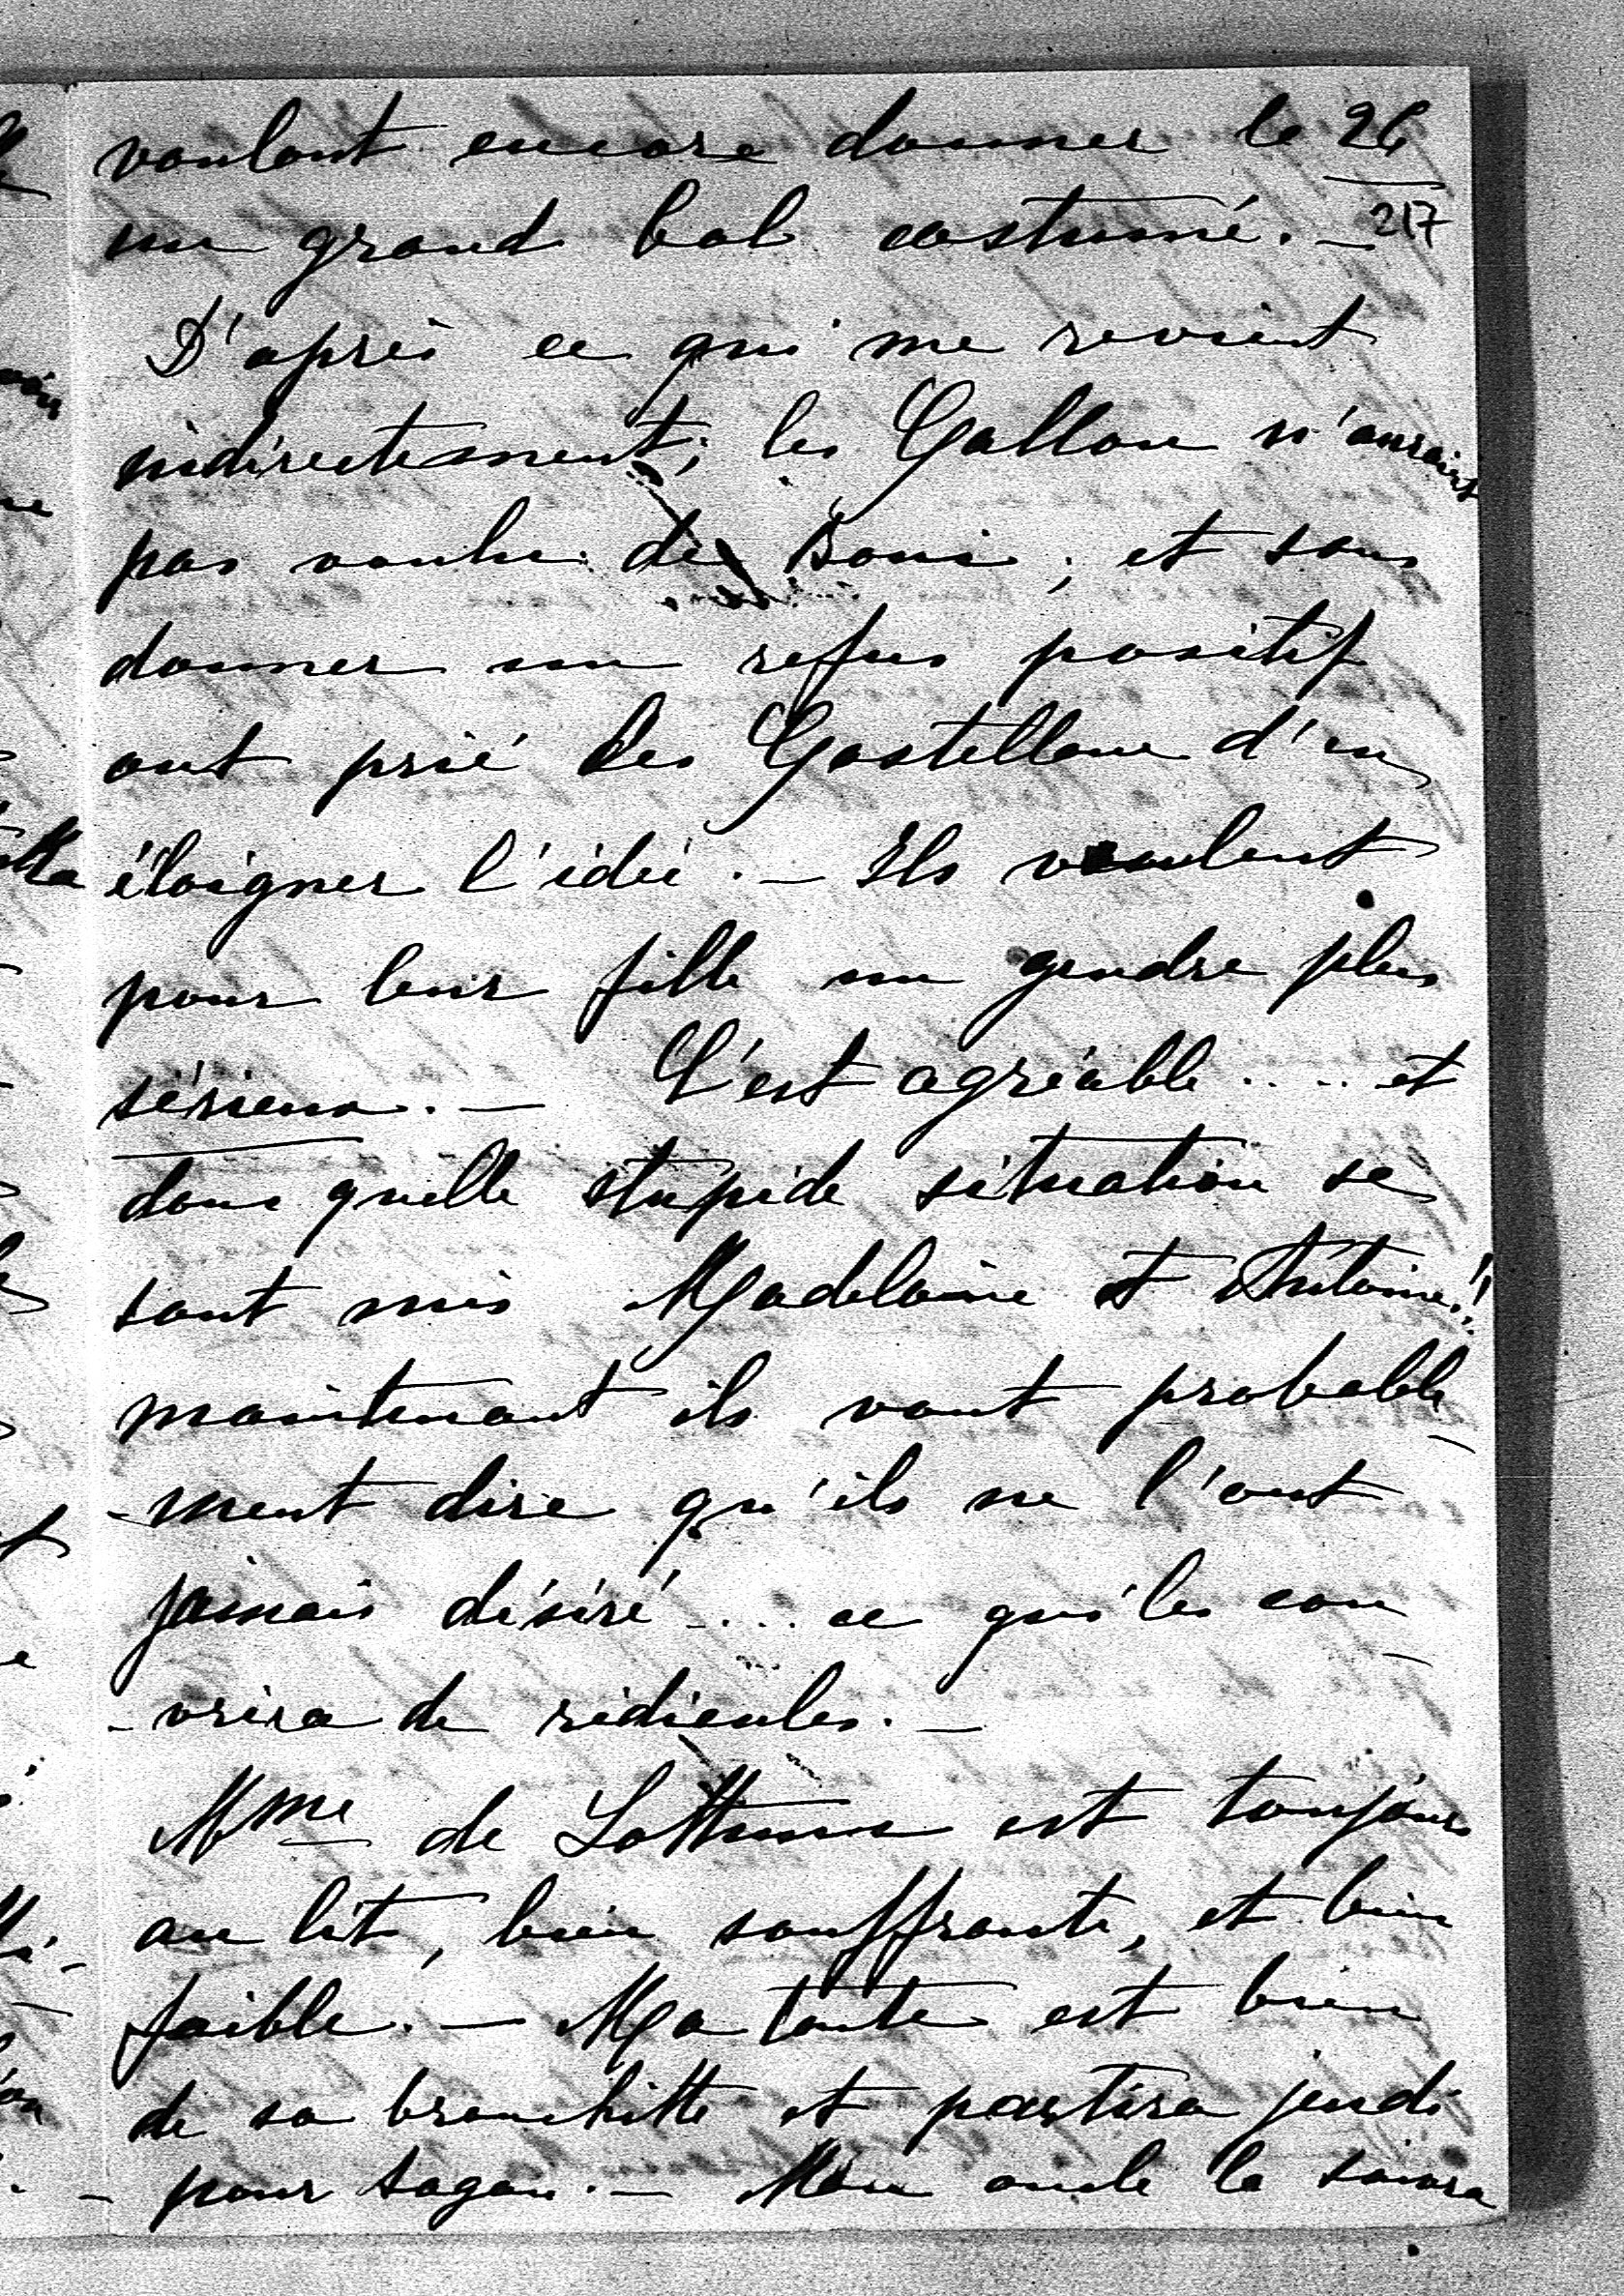 voulant encore donner le 26
217
un grand bal costumé. —
D'après ce qui me revient
indirectement; les Gallon n'auraient
pas voulu de Boni; et sans
donner un refus positif
ont prié les Castellane d'en
éloigner l'idée. — Ils veulent
pour leur fille un gendre plus
sérieux. — C'est agréable.... et
dans quelle stupide situation se
sont mis Madelaine et Antoine!!
maintenant ils vont probable-
-ment dire qu'ils ne l'ont
jamais désiré.... ce qui les cou-
-vrira de ridicules. —
Mme de Lottum est toujours
au lit, bien souffrante, et bien
faible. — Ma tante est bien
de sa bronchitte et partira jeudi
- pour Sagan. — Mon oncle la suivra